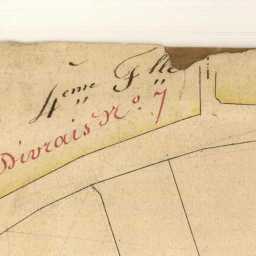 4ème Flle
Divrais No. 7